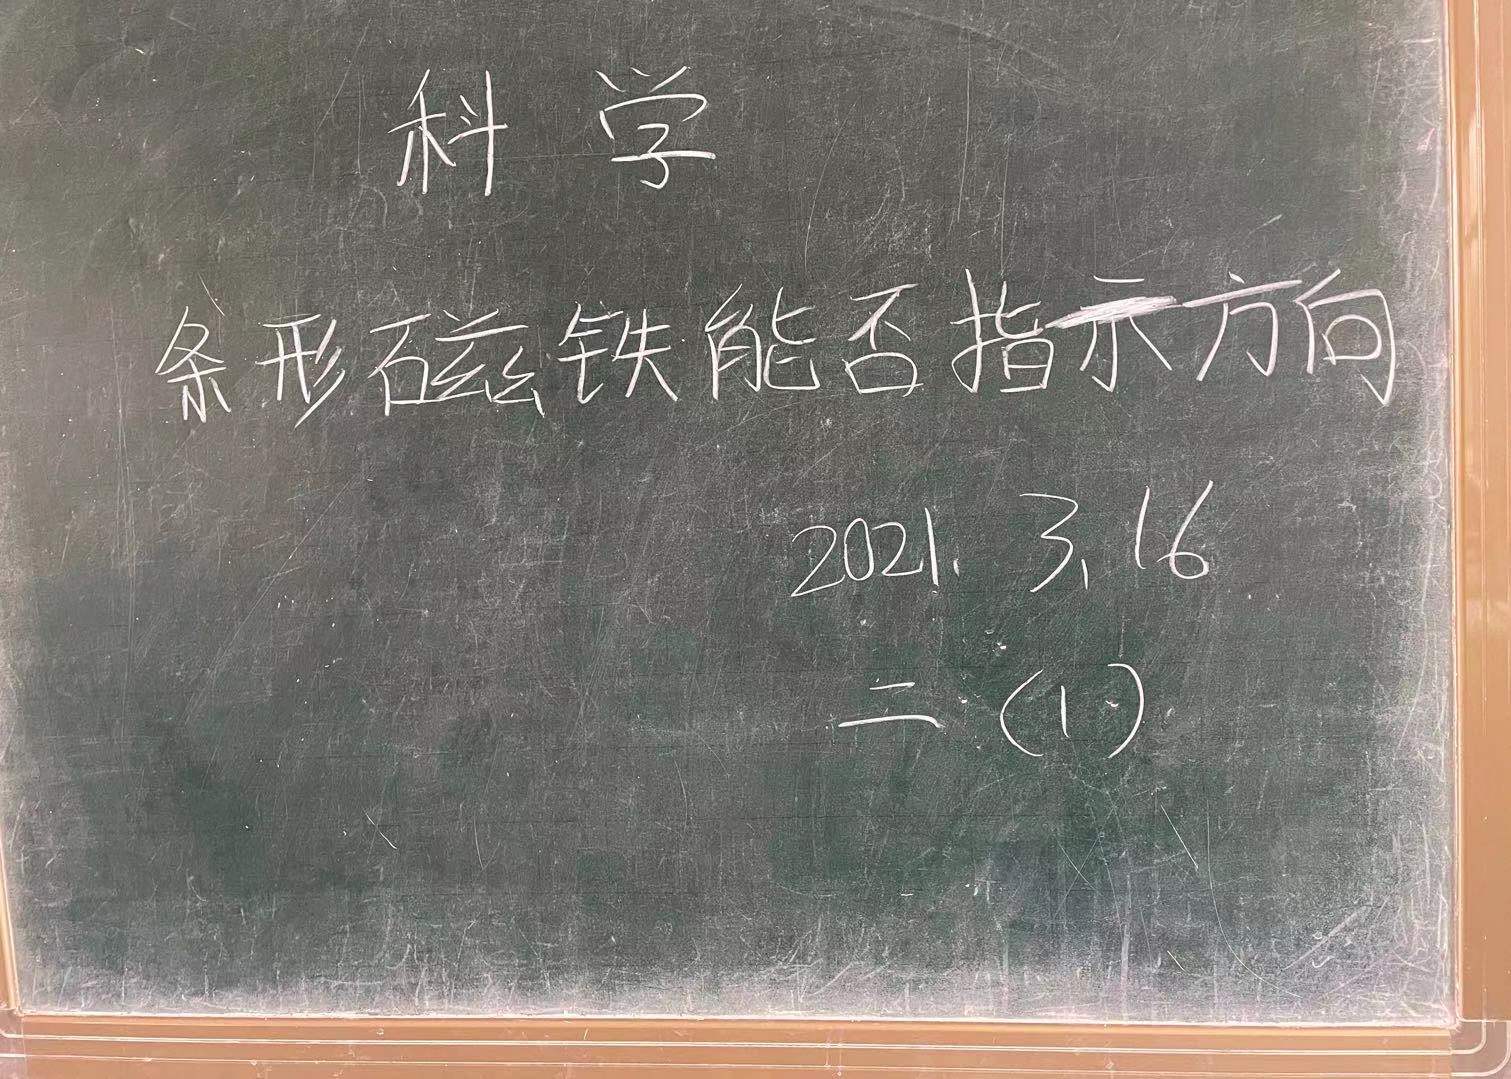 科学
条形磁铁能否指示方向
2021.3.16
二(1)